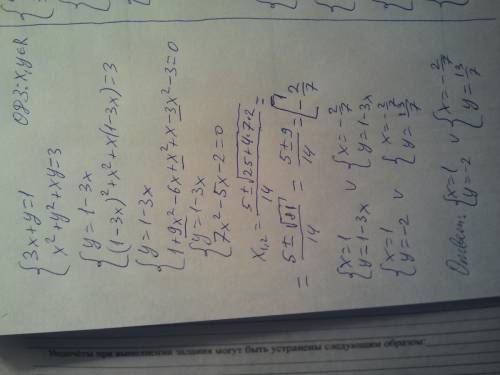 {3x+y=1      ОДЗ: x,y∈R
{x²+y²+xy=3
{y=1-3x
{(1-3x)²+x²+x(1-3x)=3
{y=1-3x
{1+9x²-6x+x²+x-3x²-3=0
{y=1-3x
{7x²-5x-2=0
x₁,₂ = (5±√(25+4·7·2))/14 =
= (5±√81)/14 = (5±9)/14 = [1; -2/7
{x=1 {y=1-3x ∨ {x=-2/7 {y=1-3x
{x=1 {y=-2 ∨ {x=-2/7 {y=13/7
Ответ: {x=1 {y=-2 ∨ {x=-2/7 {y=13/7
при выполнении задания могут быть устранены следующим образом: